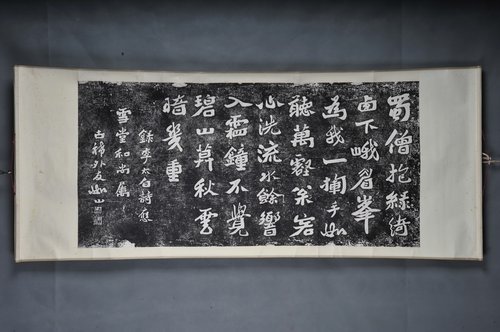 蜀僧抱綠綺
西下峨眉峯
為我一揮手如
聽萬壑松客
心洗流水餘響
入霜鐘不覺
碧山暮秋雲
暗幾重
錄李太白詩應
雪堂和尚屬
外友山